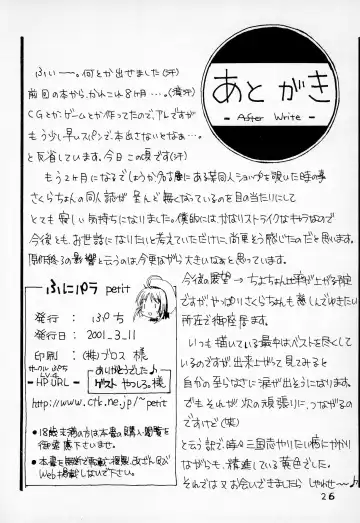 あとがき
- After Write -
ふぃ〜。何とか出せました(汗)
前回の本から、かれこれ8ヶ月・・・。(滝汗)
CGとかゲームとか作ってたので、アレですが
もう少し早いスパンで本出さないとなぁ・・・。
と反省しています、今日この頃です(汗)
もう2ヶ月になるでしょうか名古屋にある某同人ショップを覗いた時の事
さくらちゃんの同人誌が殆んど無くなっているのを目の当たりにして
とても寂しい気持ちになりました。僕的にはかなりストライクなキャラなので
今後とも、お世話になりたいと考えていただけに、尚更そう感じたのだと思います。
の影響と云うのは今更ながら大きいなぁと思っています。
今後の展望→ちよちゃん比率が上がる予定
ですが、やっぱりさくらちゃんも慈しんでゆきたい
所存で御座居ます。
いつも描いている最中はベストを尽くして
いるのですが、出来上がって見てみると
自分の至らなさに涙が出そうになります。
でもそれが次の頑張りに、つながるの
ですけど(笑)
と云う訳で、時々三国志やりたい病にやられ
ながらも、精進している黄色でした。
それでは又お会いできましたら しあわせ〜♪
ふにパラ petit
発行 : ぷち
発行日 : 2001_3_11
印刷 : (株)プロス 様
ありがとうございましたっ
ゲスト やつしろ 様
- HP URL -
http://www.ctk.ne.jp/~petit
• 18歳未満の方は本書の購入・閲覧を
御遠慮下さいませ。
• 本書を無断で転載・複製・改ざん及び
Web掲載しないで下さい。
26